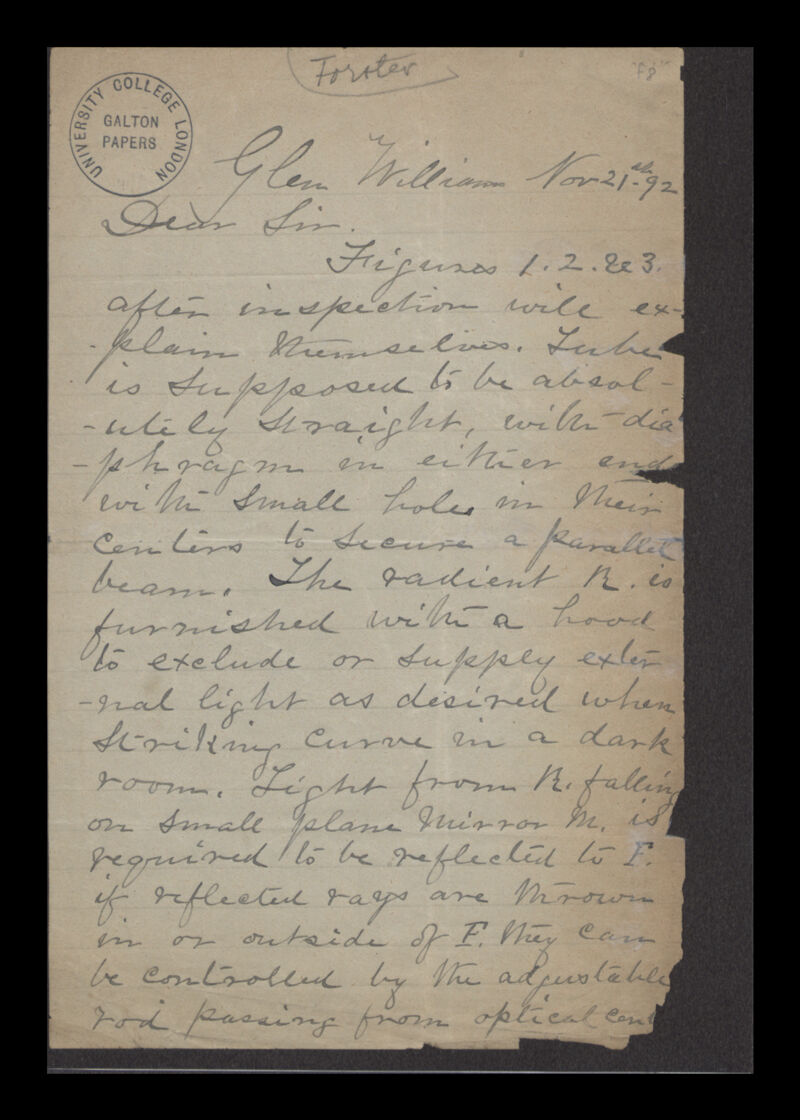 Forster
"F8"
UNIVERSITY COLLEGE LONDON
GALTON
PAPERS
Glen William Nov 21st-92
Dear Sir.
Figures 1.2.&3.
after inspection will ex-
-plain themselves. Tube
is supposed to be absol-
-utely straight, with dia
-phragm in either end
with small holes in their
centers to secure a parallel
beam. The radient R. is
furnished with a hood
to exclude or supply exter
-nal light as desired when
striking curve in a dark
room. Light from R. falling
on small plane mirror M. is
required to be reflected to F.
if reflected rays are thrown
in or outside of F. they can
be controlled by the adjustable
rod passing from optical cent